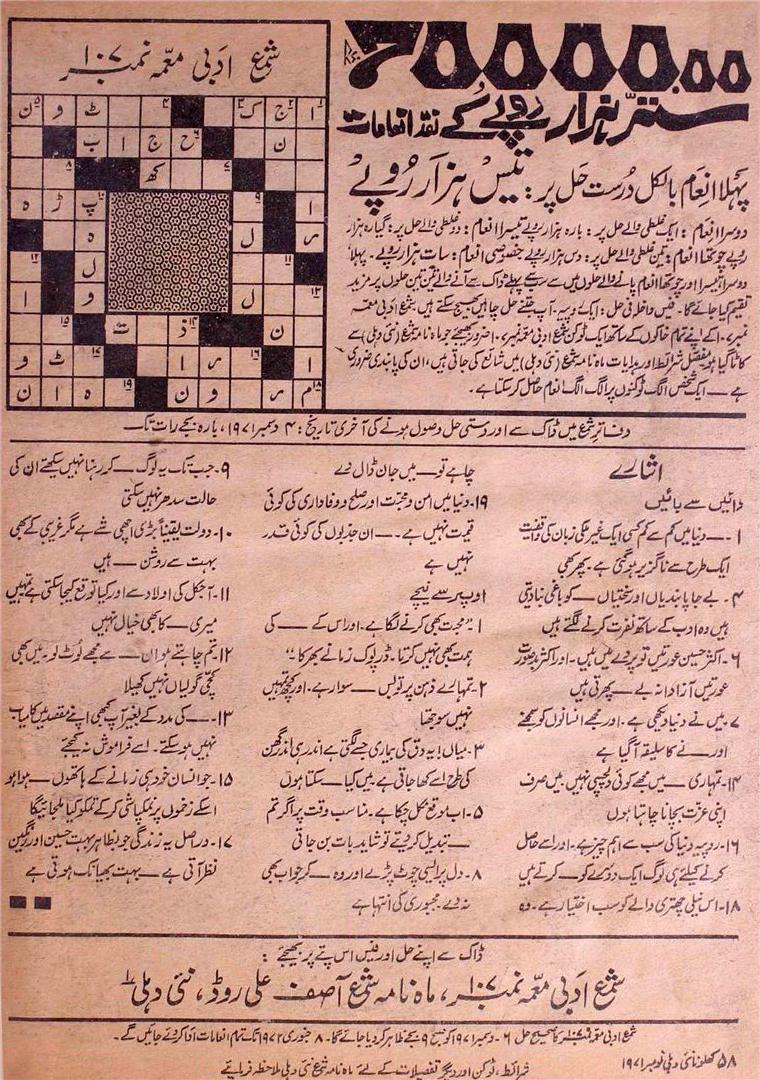 شمع ادبی معمّہ نمبر ۱۰۷
70000.00
ستّر ہزار روپے کے نقد انعامات
پہلا انعام بالکل درست حل پر: تیس ہزار روپے
دوسرا انعام: ایک غلطی والے حل پر: بارہ ہزار روپے تیسرا انعام: دو غلطی والے حل پر: گیارہ ہزار
روپے چوتھا انعام: تین غلطی والے حل پر: دس ہزار روپے خصوصی انعام: سات ہزار روپے۔ پہلا،
دوسرا، تیسرا اور چوتھا انعام پانے والے حلوں میں سے سب سے پہلے ڈاک سے آنے والے تین تین حلوں پر مزید
تقسیم کیا جائے گا۔ فیس داخلہ فی حل: ایک روپیہ۔ آپ جتنے حل چاہیں بھیج سکتے ہیں۔ شمع ادبی معمّہ
نمبر ۱۰۷ کے اپنے تمام خاکوں کے ساتھ ایک ٹوکن شمع ادبی معمّہ نمبر ۱۰۷ ضرور بھیجئے جو ماہ نامہ شمع (نئی دہلی) سے
کاٹا گیا ہو۔ مفصّل شرائط اور ہدایات ماہ نامہ شمع (نئی دہلی) میں شائع کی جاتی ہیں، ان کی پابندی ضروری
ہے — ایک شخص الگ الگ ٹوکنوں پر الگ الگ انعام حاصل کر سکتا ہے۔
۱ا ۲ج ۳ک ۴ ٹ و ۵ن
ن ۶ح ج ا ب
۷ کھ ۸
ا ۹ ۱۰پ ڑ ہ
ر ل ہ
۱۱ ل ۱۲
۱۳ ل و ا
ن ۱۴ذ ت ۱۵
ا ۱۶ ر ا ۱۷ ٹ و
۱۸م ر و ن ۱۹ ہ ا ن
دفاتر شمع میں ڈاک سے اور دستی حل وصول ہونے کی آخری تاریخ: ۴ دسمبر ۱۹۷۱، بارہ بجے رات تک
اشارے
دائیں سے بائیں
۱۔ — دنیا میں کم سے کم کسی ایک غیر ملکی زبان کی واقفیت
ایک طرح سے ناگزیر ہو گئی ہے۔ پھر بھی
۴۔ بے جا پابندیاں اور سختیاں — کو باغی بنا دیتی
ہیں وہ ادب کے ساتھ نفرت کرنے لگتے ہیں
۶۔ اکثر حسین عورتیں تو پردے میں ہیں۔ اور اکثر بدصورت
عورتیں آزادانہ بے — پھرتی ہیں
۷۔ میں نے دنیا دیکھی ہے۔ اور مجھے انسانوں کو سمجھنے
اور — نے کا سلیقہ آ گیا ہے
۱۴۔ تمہاری — میں مجھے کوئی دلچسپی نہیں۔ میں صرف
اپنی عزت بچانا چاہتا ہوں
۱۶۔ روپیہ دنیا کی سب سے اہم چیز ہے۔ اور اسے حاصل
کرنے کیلئے ہی لوگ ایک دوسرے کو — کرتے ہیں
۱۸۔ اس نیلی چھتری والے کو سب اختیار ہے۔ وہ
چاہے تو — میں جان ڈال دے
۱۹۔ دنیا میں امن و محبت اور صلح و وفاداری کی کوئی
قیمت نہیں ہے۔ — ان جذبوں کی کوئی قدر
نہیں ہے
اوپر سے نیچے
۱۔ "محبت بھی کرنے لگا ہے۔ اور اس کے — کی
ہمت بھی نہیں کرتا۔ ڈرپوک زمانے بھر کا۔"
۲۔ تمہارے ذہن پر تو بس — سوار ہے۔ اور کچھ تمہیں
نہیں سوجھتا
۳۔ میاں! یہ دق کی بیماری جسے لگتی ہے اندر ہی اندر گھن
کی طرح اسے کھا جاتی ہے۔ میں کیا — سکتا ہوں
۵۔ اب موقع نکل چکا ہے۔ مناسب وقت پر اگر تم
— تبدیل کر دیتے تو شاید بات بن جاتی
۸۔ دل پر ایسی چوٹ پڑے اور وہ — کر جواب بھی
نہ دے۔ مجبوری کی انتہا ہے
۹۔ جب تک یہ لوگ — کر رہنا نہیں سیکھتے ان کی
حالت سدھر نہیں سکتی
۱۰۔ دولت یقیناً بڑی اچھی شے ہے مگر غریبی کے بھی
بہت سے روشن — ہیں
۱۱۔ آجکل کی اولاد سے اور کیا توقع کی جا سکتی ہے تمہیں
میری — کا بھی خیال نہیں
۱۲۔ تم چاہتے ہو ان — سے مجھے لوٹ لو۔ میں بھی
کچی گولیاں نہیں کھیلا
۱۳۔ — کی مدد کے بغیر آپ کبھی اپنے مقصد میں کامیاب
نہیں ہو سکتے۔ اسے فراموش نہ کیجئے
۱۵۔ جو انسان خود ہی زمانے کے ہاتھوں — ہوا ہو
اسکے زخموں پر نمک پاشی کر کے تمکو کیا مل جائیگا
۱۷۔ در اصل یہ زندگی جو بظاہر بہت حسین اور رنگین
نظر آتی ہے — بہت بھیانک ہوتی ہے
ڈاک سے اپنے حل اور فیس اس پتے پر بھیجئے:
شمع ادبی معمّہ نمبر ۱۰۷، ماہ نامہ شمع آصف علی روڈ، نئی دہلی ۱
شمع ادبی معمّہ نمبر ۱۰۷ کا صحیح حل ۶ دسمبر ۱۹۷۱ کو صبح ۹ بجے ظاہر کر دیا جائے گا۔ ۸ جنوری ۱۹۷۲ تک تمام انعامات ادا کر دئے جائیں گے۔
شرائط، ٹوکن اور دیگر تفصیلات کے لئے ماہ نامہ شمع نئی دہلی ملاحظہ فرمائیے
۵۸ کھلونا نئی دہلی نومبر ۱۹۷۱